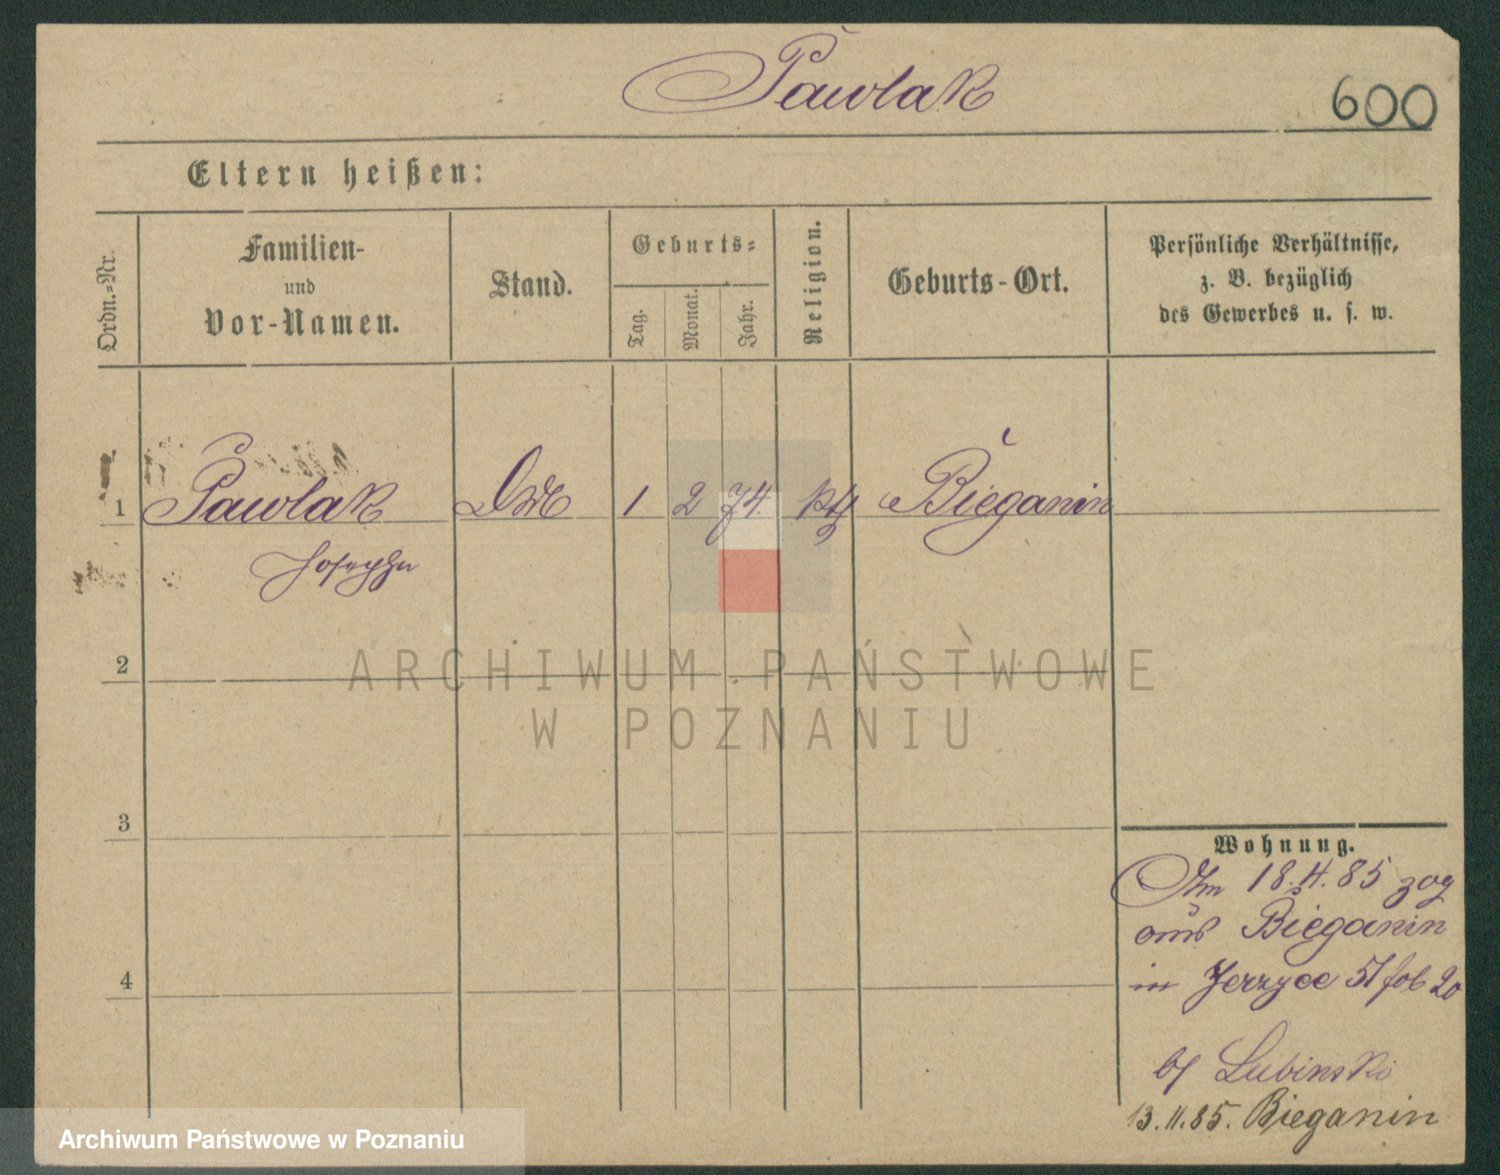 Pawlak
600
Eltern heißen:
Ordn.-Nr.
Familien-
und
Vor-Namen.
Stand.
Geburts-
Tag.
Monat.
Jahr.
Religion.
Geburts-Ort.
Persönliche Verhältnisse,
z. B. bezüglich
des Gewerbes u. s. w.
1 Pawlak 1 2 74. kth Bieganin
Josepha
2
ARCHIWUM PAŃSTWOWE
W POZNANIU
3
Wohnung.
Am 18.4.85 zog
aus Bieganin
in Jerzyce 57
4
b/ Lubinski
13.11.85. Bieganin
Archiwum Państwowe w Poznaniu